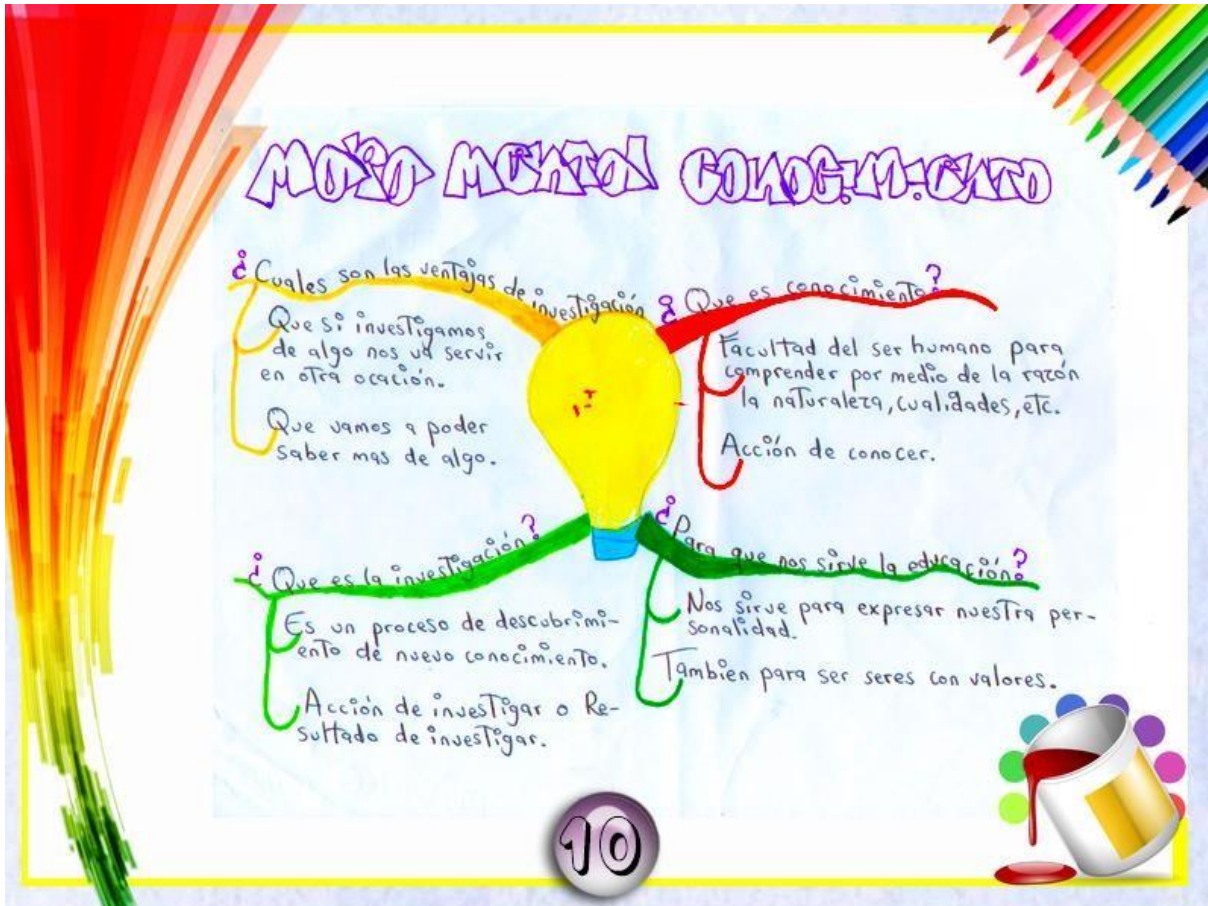 Mapa Mental Conocimiento
¿Cuales son las ventajas de investigación
Que si investigamos
de algo nos va servir
en otra ocación.
Que vamos a poder
saber mas de algo.
¿Que es conocimiento?
Facultad del ser humano para
comprender por medio de la razón
la naturaleza, cualidades, etc.
Acción de conocer.
¿Que es la investigación?
Es un proceso de descubrimi-
ento de nuevo conocimiento.
Acción de investigar o Re-
sultado de investigar.
¿Para que nos sirve la educación?
Nos sirve para expresar nuestra per-
sonalidad.
Tambien para ser seres con valores.
10